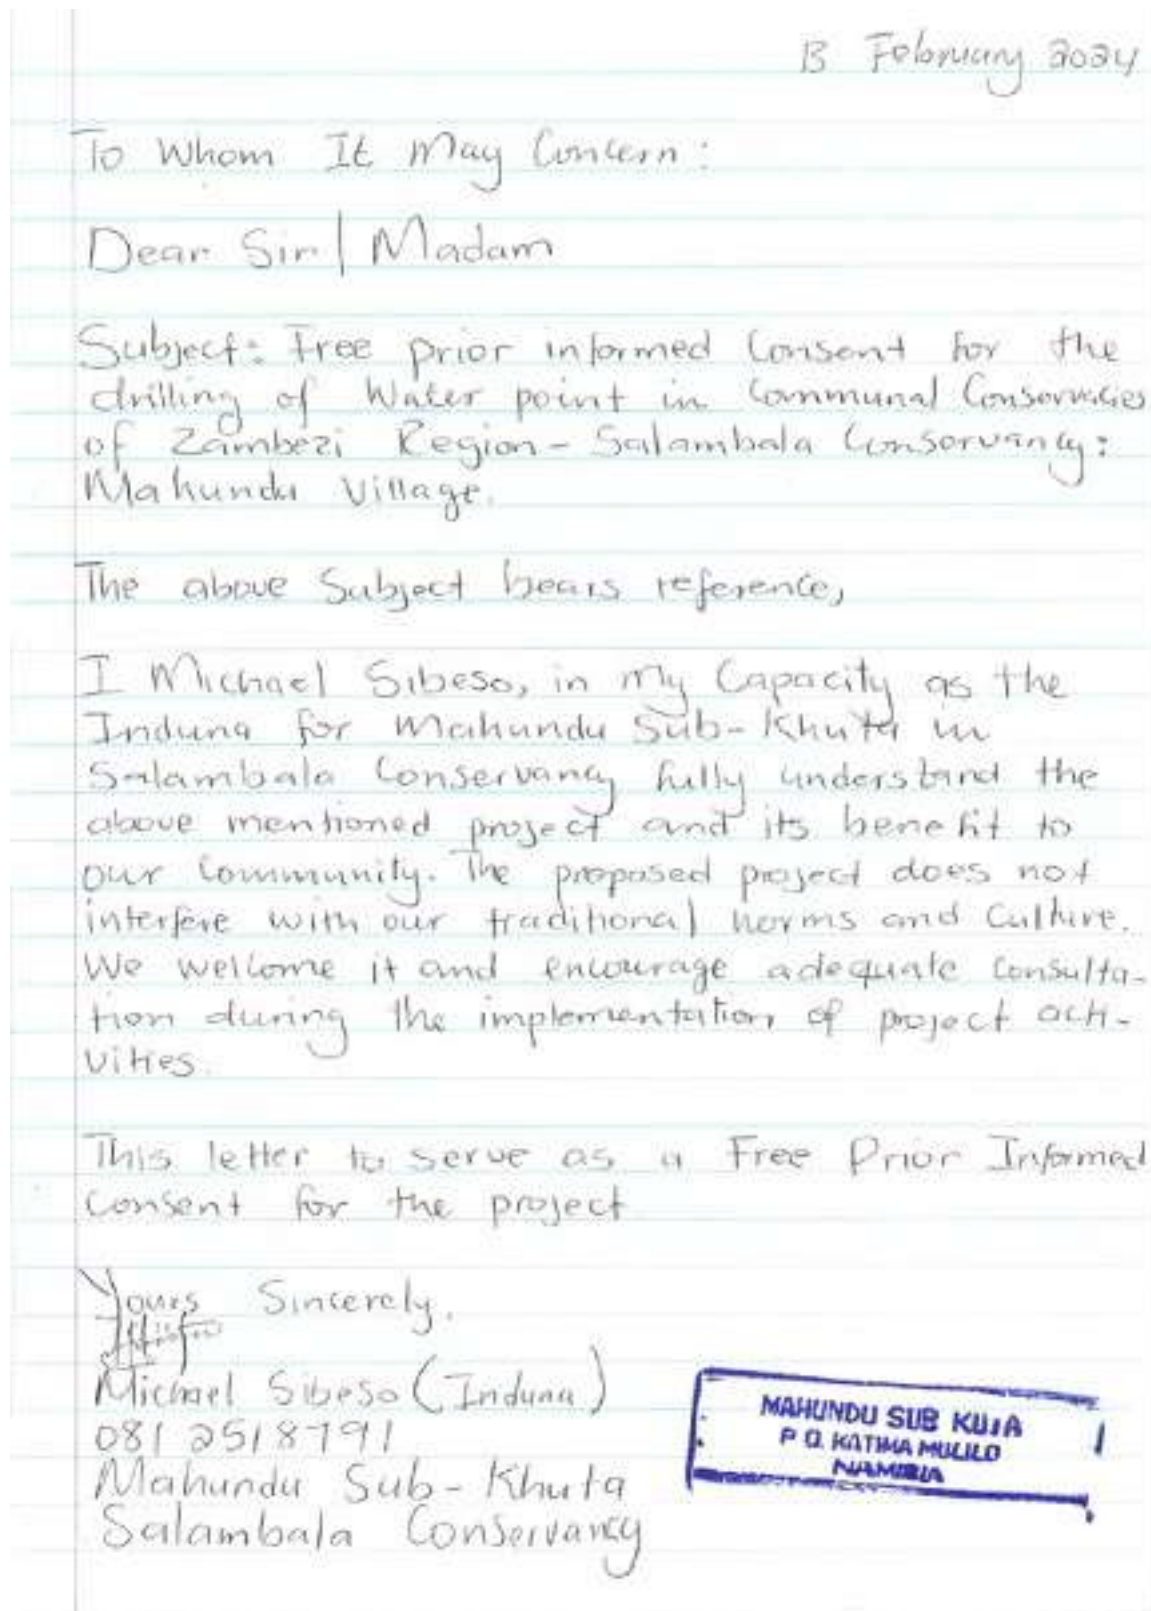 13 February 2024
To Whom It May Concern:
Dear Sir/Madam
Subject: Free prior informed Consent for the
drilling of Water point in Communal Conservacies
of Zambezi Region- Salambala Conservancy:
Mahundu Village.
The above Subject bears reference,
I Michael Sibeso, in my Capacity as the
Induna for Mahundu Sub-Khuta in
Salambala Conservancy fully understand the
above mentioned project and its benefit to
our Community. The proposed project does not
interfere with our traditional norms and Culture.
We welcome it and encourage adequate Consulta-
tion during the implementation of project acti-
vities.
This letter to serve as a Free Prior Informed
Consent for the project
Yours Sincerely.
Michael Sibeso (Induna)
081 2518791
Mahundu Sub-Khuta
Salambala Conservancy
MAHUNDU SUB KUTA
P O. KATIMA MULILO
NAMIBIA